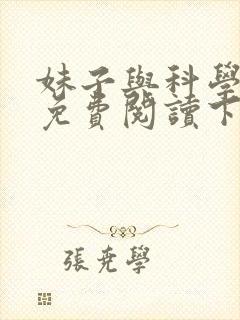 妹子與科學
免費閱讀下
張堯學